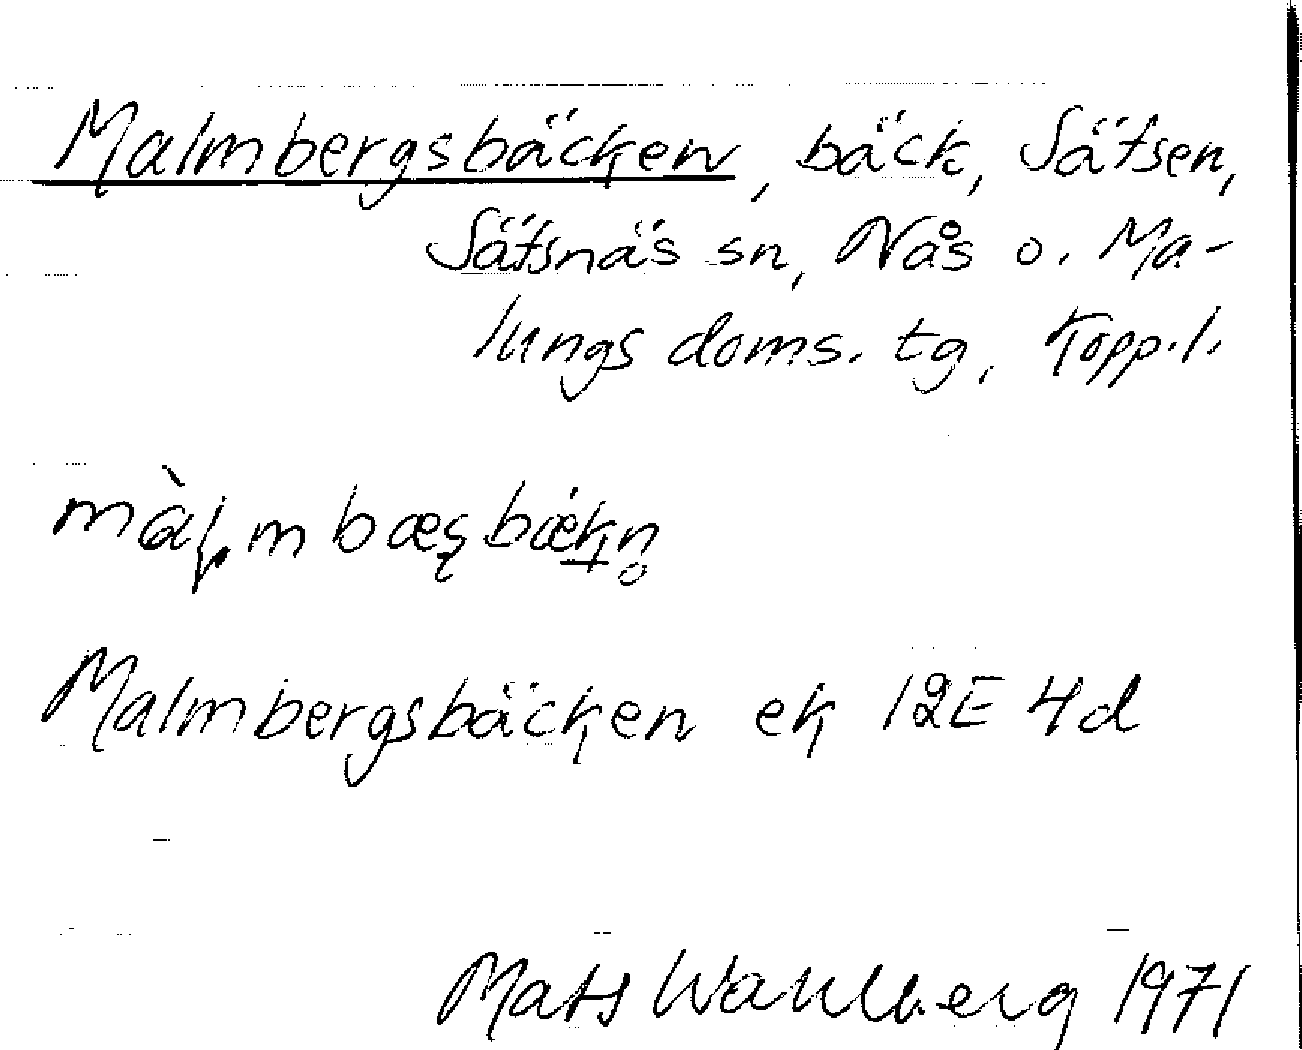 Malmbergsbäcken, bäck, Sätsen,
Sätsnäs sn, Nås o. Ma-
lungs doms. tg, Kopp.l.
Malmbergsbäcken ek 12E 4d
Mats Wahlberg 1971